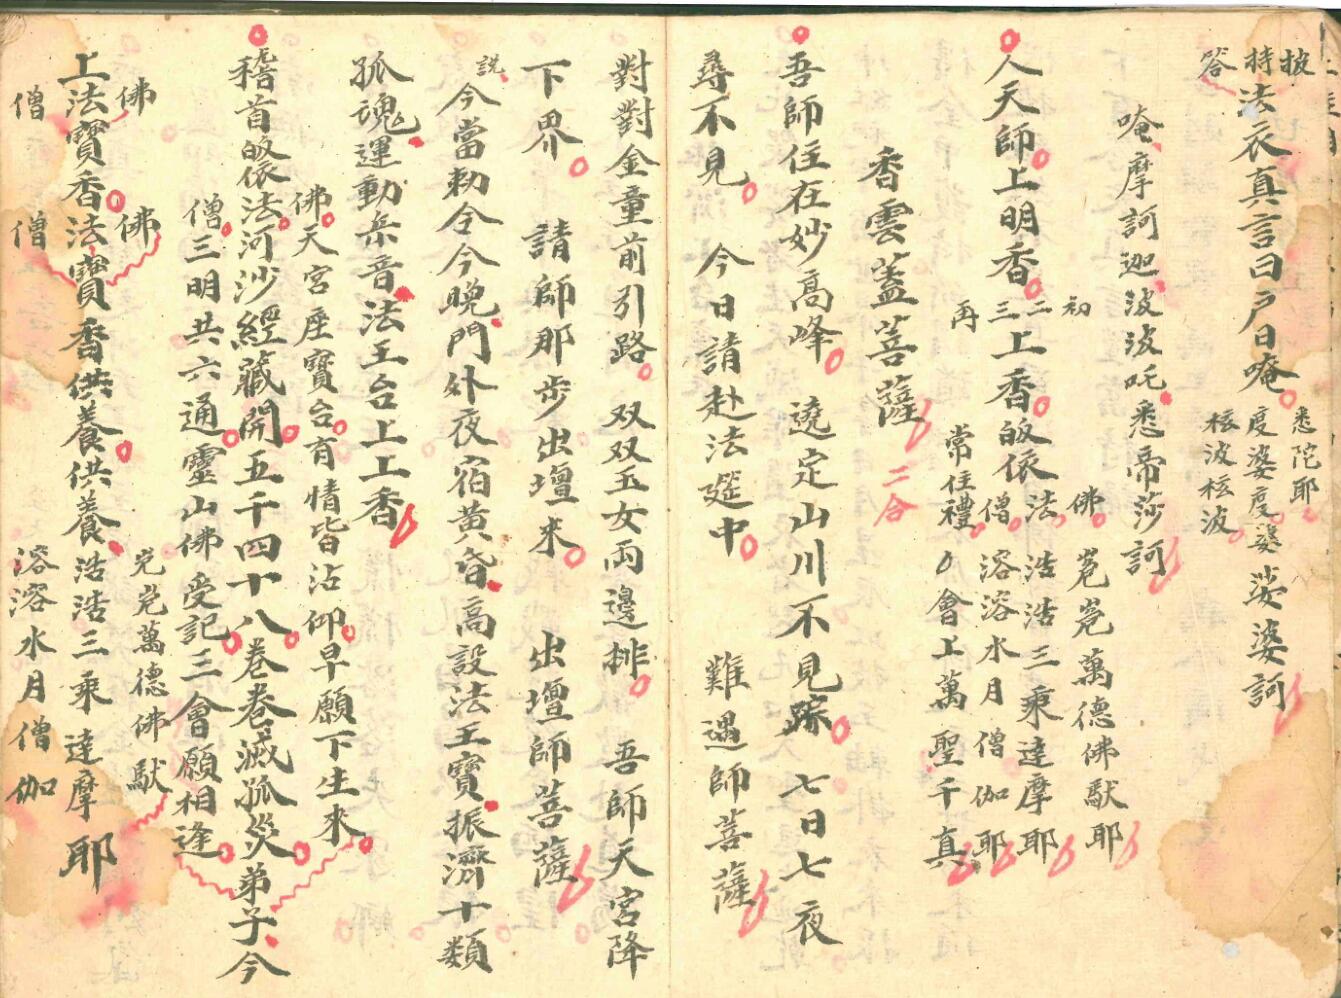 披持法衣真言曰戶日唵
答
悉陀耶
度婆度婆
桵波桵波
娑婆訶
唵摩訶迦波波吒悉帝莎訶
人天師上明香
初二三上香皈依
再
佛 巍巍萬德佛馱耶
法 浩浩三乘達摩耶
僧 溶溶水月僧伽耶
常住禮 會上萬聖千真
香雲蓋菩薩 二合
吾師住在妙高峰 遶定山川不見踪 七日七夜
尋不見 今日請赴法筵中 難遇師菩薩
對對金童前引路 双双玉女両邊排 吾師天宮降
下界 請師那步出壇來 出壇師菩薩
説今當勅令今晚門外夜宿黄昏高設法王寶振濟十類
孤魂運動樂音法王台上上香
佛天宮座寶台有情皆沾仰早願下生來
稽首皈依法河沙經藏開五千四十八卷卷滅孤災弟子今
僧三明共六通靈山佛受記三會願相逢
佛 佛
上法寶香法寶香供養供養浩浩三乘達摩耶
僧 僧
巍巍萬德佛馱
溶溶水月僧伽